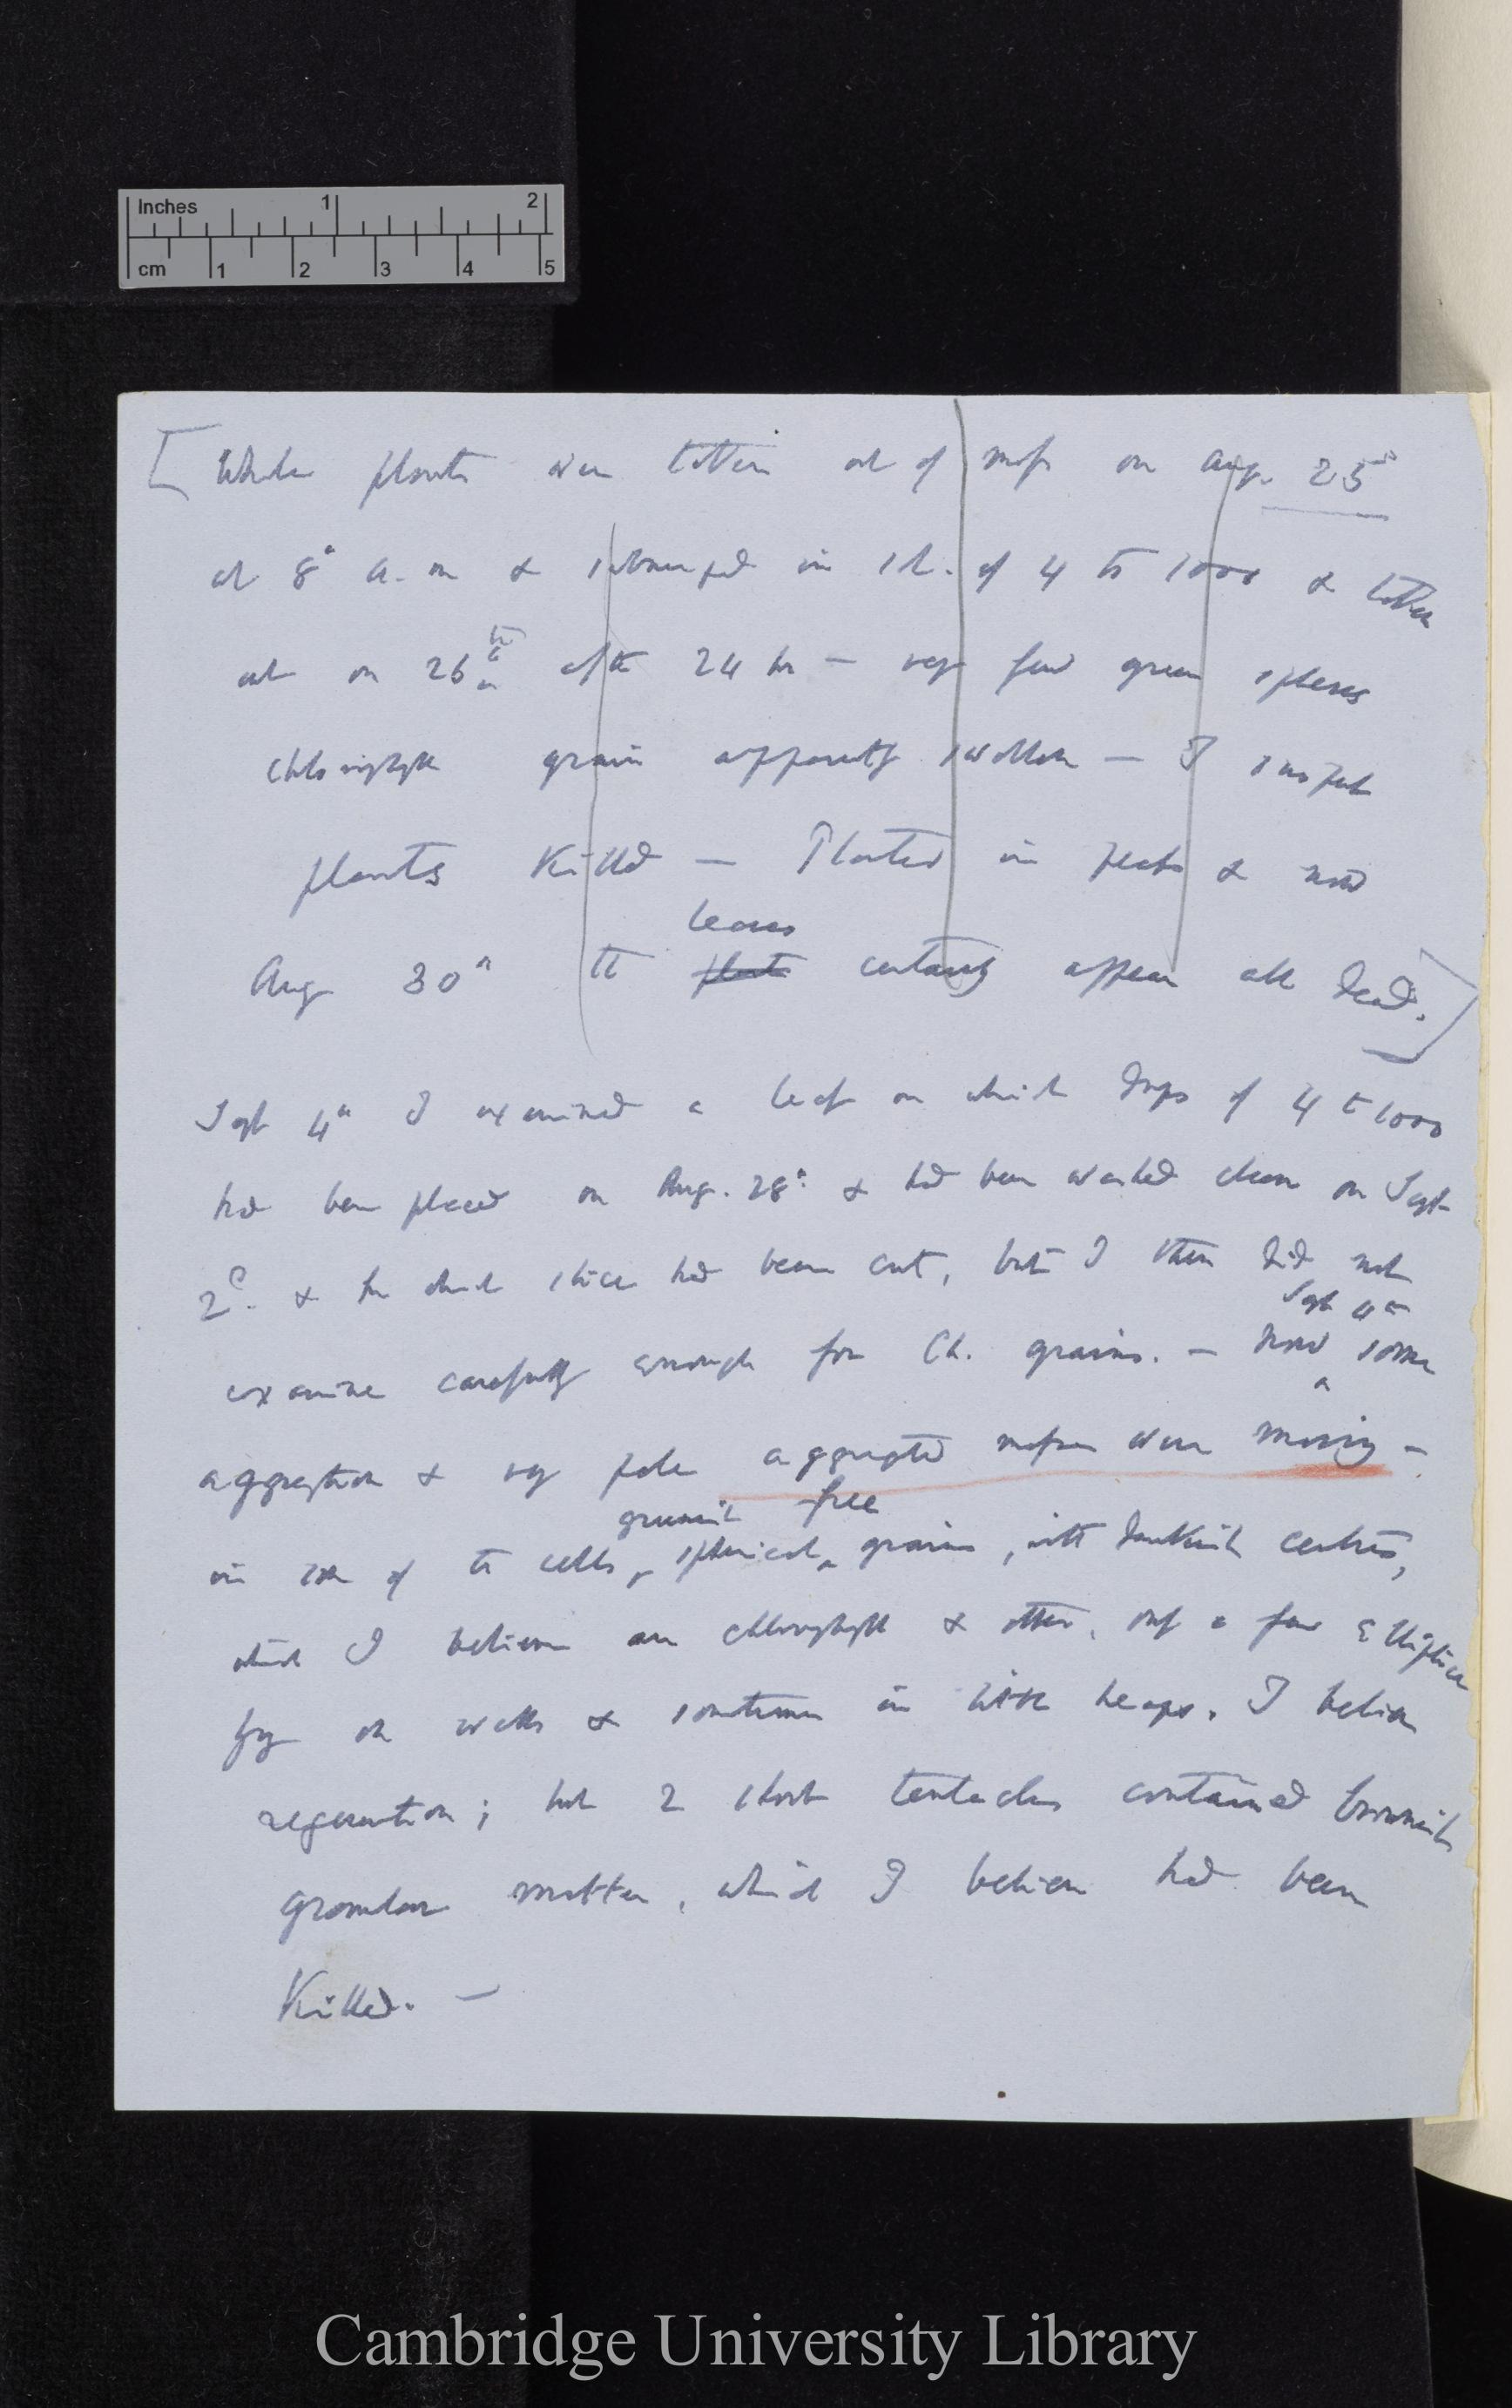 Inches 1 2
cm 1 2 3 4 5
[Whole plants were taken out of moss on Aug. 25th
at 8h a.m & submerged in sol. of 4 to 1000 & taken
out on 26th after 24 hr — very few green spheres
chlorophyll grains apparently swollen — I suspect
plants killed — Planted in peat & now
leaves
Aug 30th the plants certainly appear all dead.]
Sept 4th I examined a leaf on which drops of 4 to 1000
had been placed on Aug. 28th & had been washed clean on Sept
2d. & from which slices had been cut, but I then did not
Sept 4th
examine carefully enough for Ch. grains. — now some
aggregation & very pale aggregated masses were moving —
greenish free
in some of the cells, spherical grains, with darkish centres,
which I believe are chlorophyll & others, only a few elliptical
on walls & sometimes in little heaps. I believe
regeneration; but 2 short tentacles contained brownish
granular matter, which I believe had been
Killed. —
Cambridge University Library